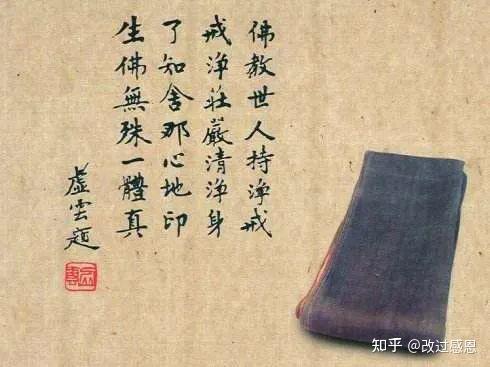 佛教世人持淨戒
戒淨莊嚴清淨身
了知舍那心地印
生佛無殊一體真
虛雲題
知乎 @改过感恩